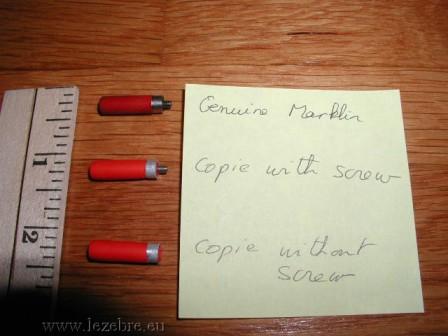 Genuine Marklin
Copie with screw
Copie without
screw
1
2
www.lezebre.eu